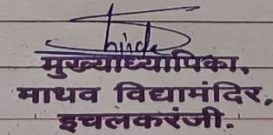 मुख्याध्यापिका,
माधव विद्यामंदिर,
इचलकरंजी.